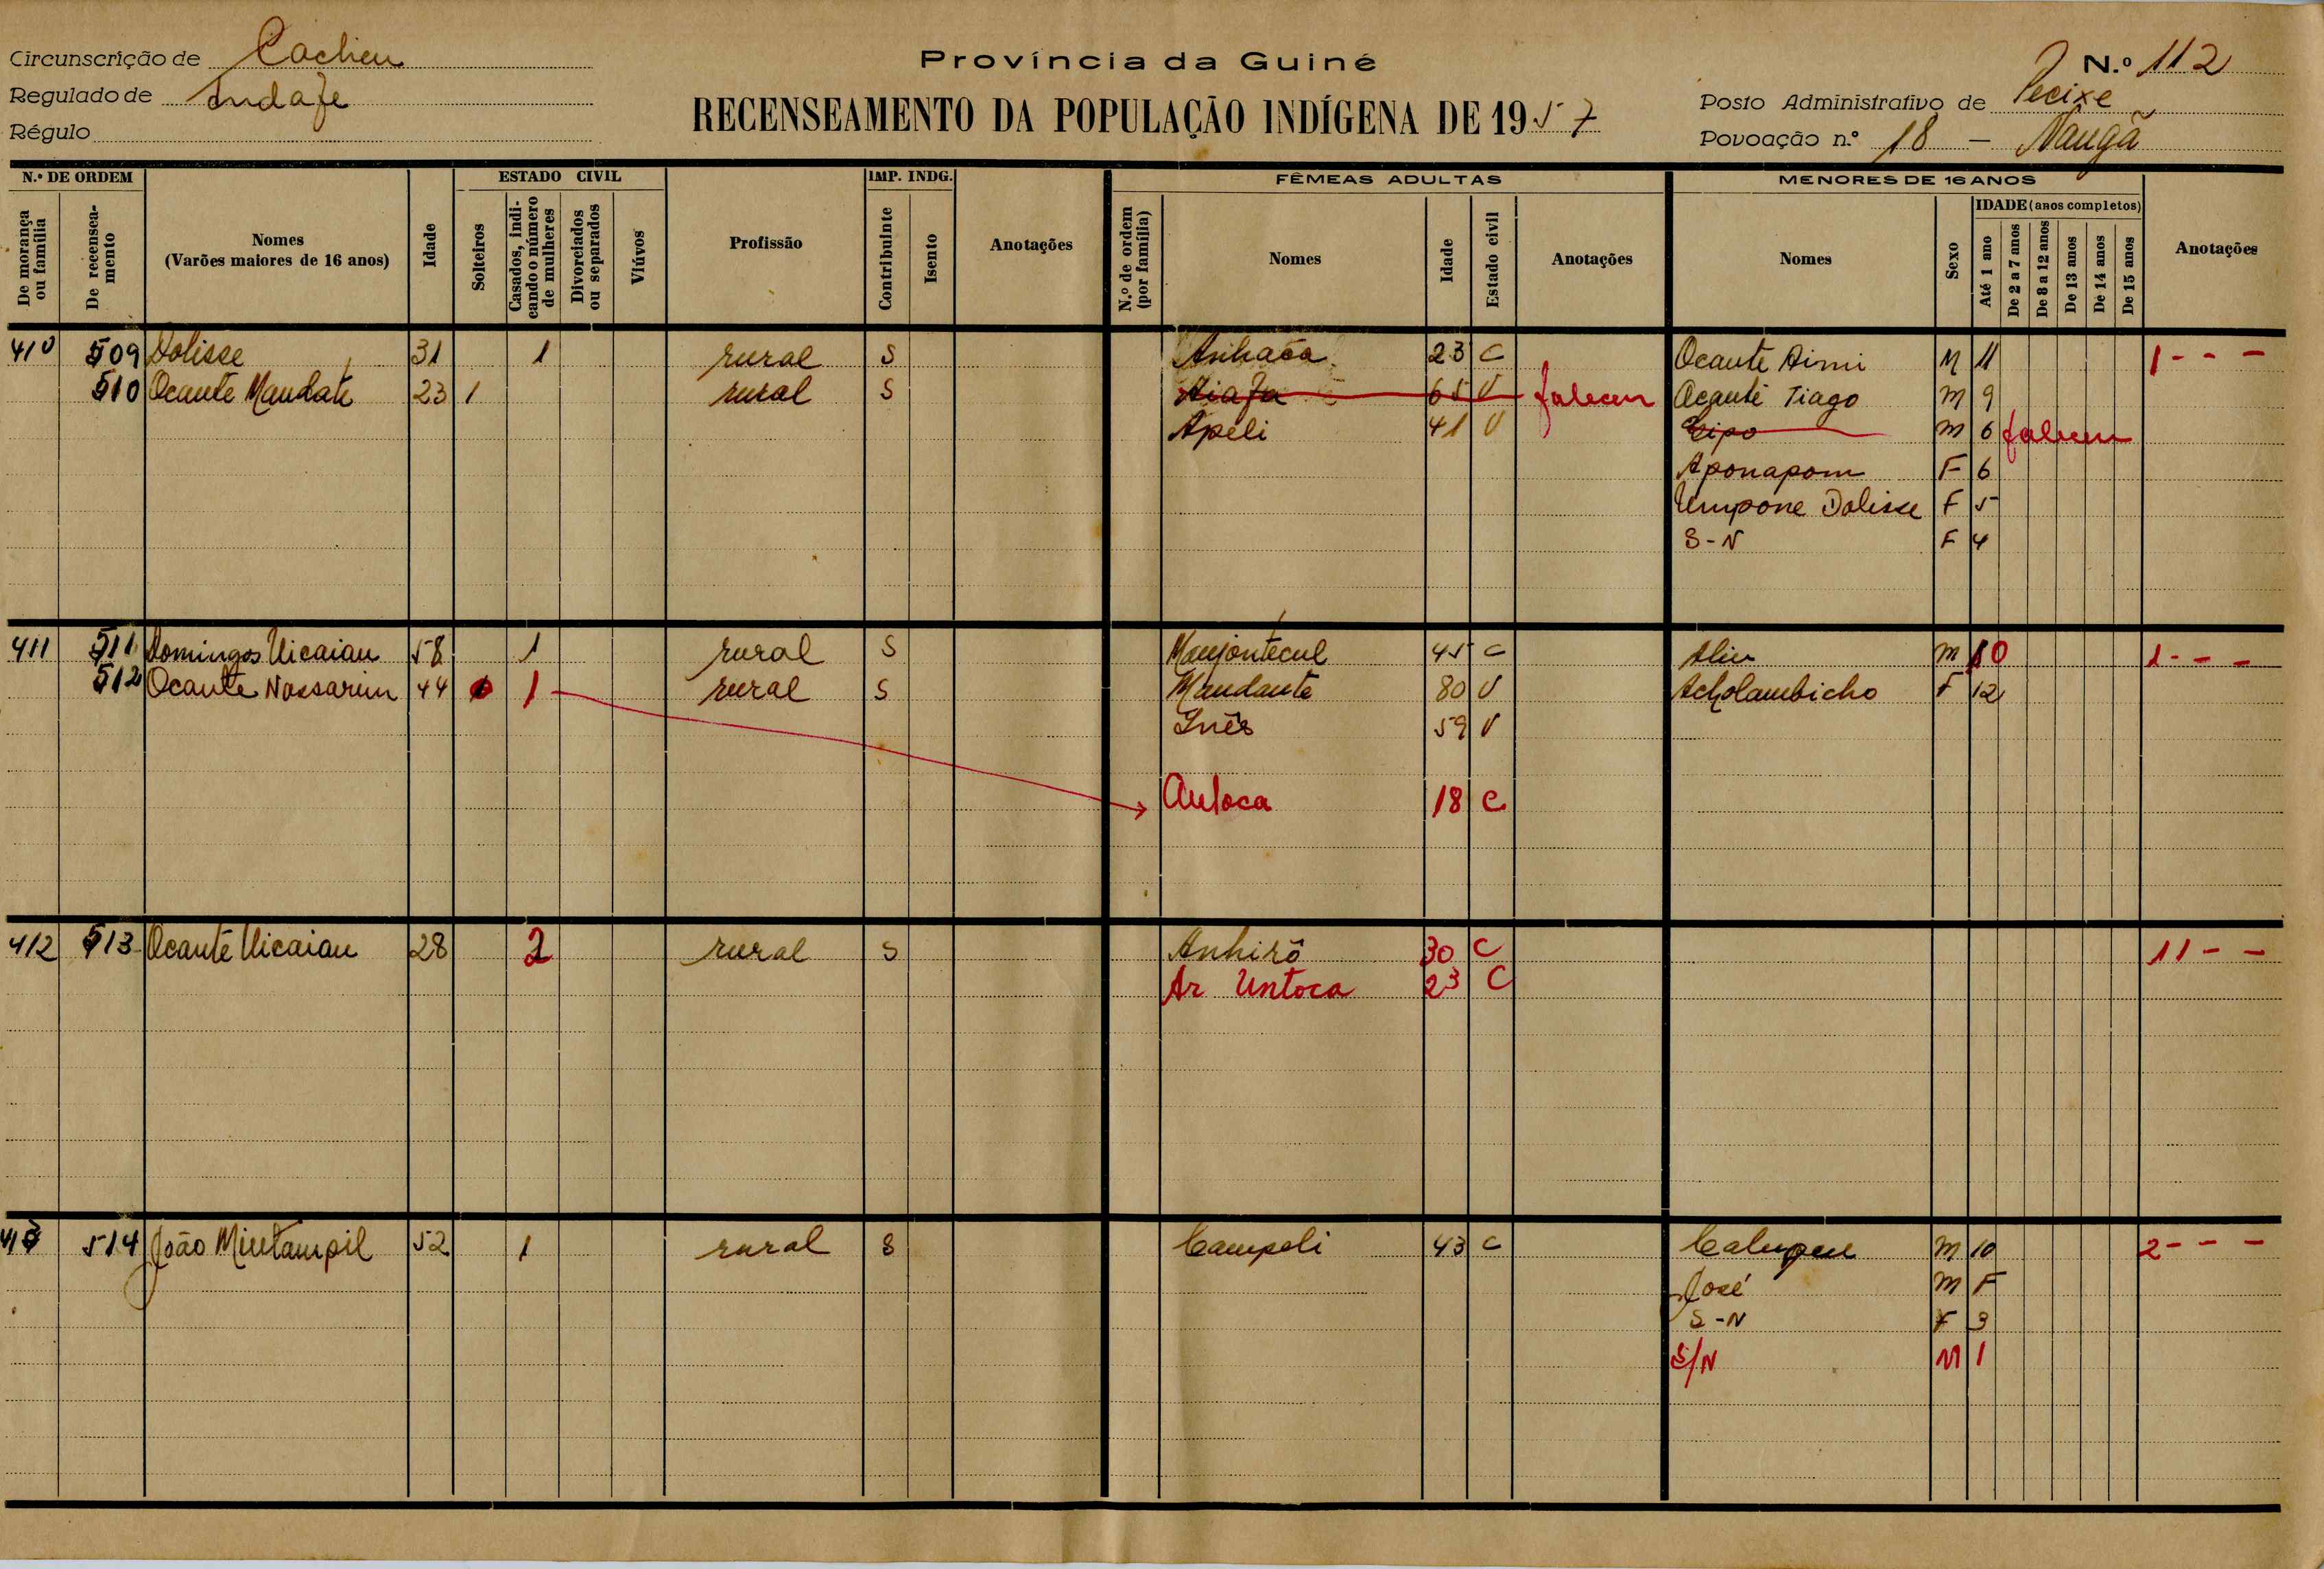 Circunscrição de Cacheu
Regulado de Indafe
Régulo
Província da Guiné
RECENSEAMENTO DA POPULAÇÃO INDÍGENA DE 1957
N.º 112
Posto Administrativo de Pecixe
Povoação n.º 18 — Nangã
N.º DE ORDEM
De morança ou família
De recenseamento
Nomes
(Varões maiores de 16 anos)
Idade
ESTADO CIVIL
Solteiros
Casados, indicando o número de mulheres
Divorciados ou separados
Viúvos
Profissão
IMP. INDG.
Contribuinte
Isento
Anotações
FÊMEAS ADULTAS
N.º de ordem (por família)
Nomes
Idade
Estado civil
Anotações
MENORES DE 16 ANOS
Nomes
Sexo
IDADE (anos completos)
Até 1 ano
De 2 a 7 anos
De 8 a 12 anos
De 13 anos
De 14 anos
De 15 anos
Anotações
410 509 Dolisse 31 1 rural S Anhaca 23 C Ocante Aimi M 11 1 - - -
510 Ocante Mandate 23 1 rural S Aiafa 65 V faleceu Ocante Tiago M 9
Apeli 41 V Cipo M 6 faleceu
Aponapom F 6
Umpone Dolisse F 5
S-N F 4
411 511 Domingos Uicaiau 58 1 rural S Manjontecul 45 C Aliu M 10 1 - - -
512 Ocante Nassarim 44 1 rural S Mandante 80 V Acholambicho F 12
Inês 59 V
Antoca 18 C
412 513 Ocante Uicaiau 28 2 rural S Anhirô 30 C 11 - -
Ar Untoca 23 C
413 514 João Mintampil 52 1 rural S Campeli 43 C M 10 2 - - -
José M F
S-N F 3
S/N M 1